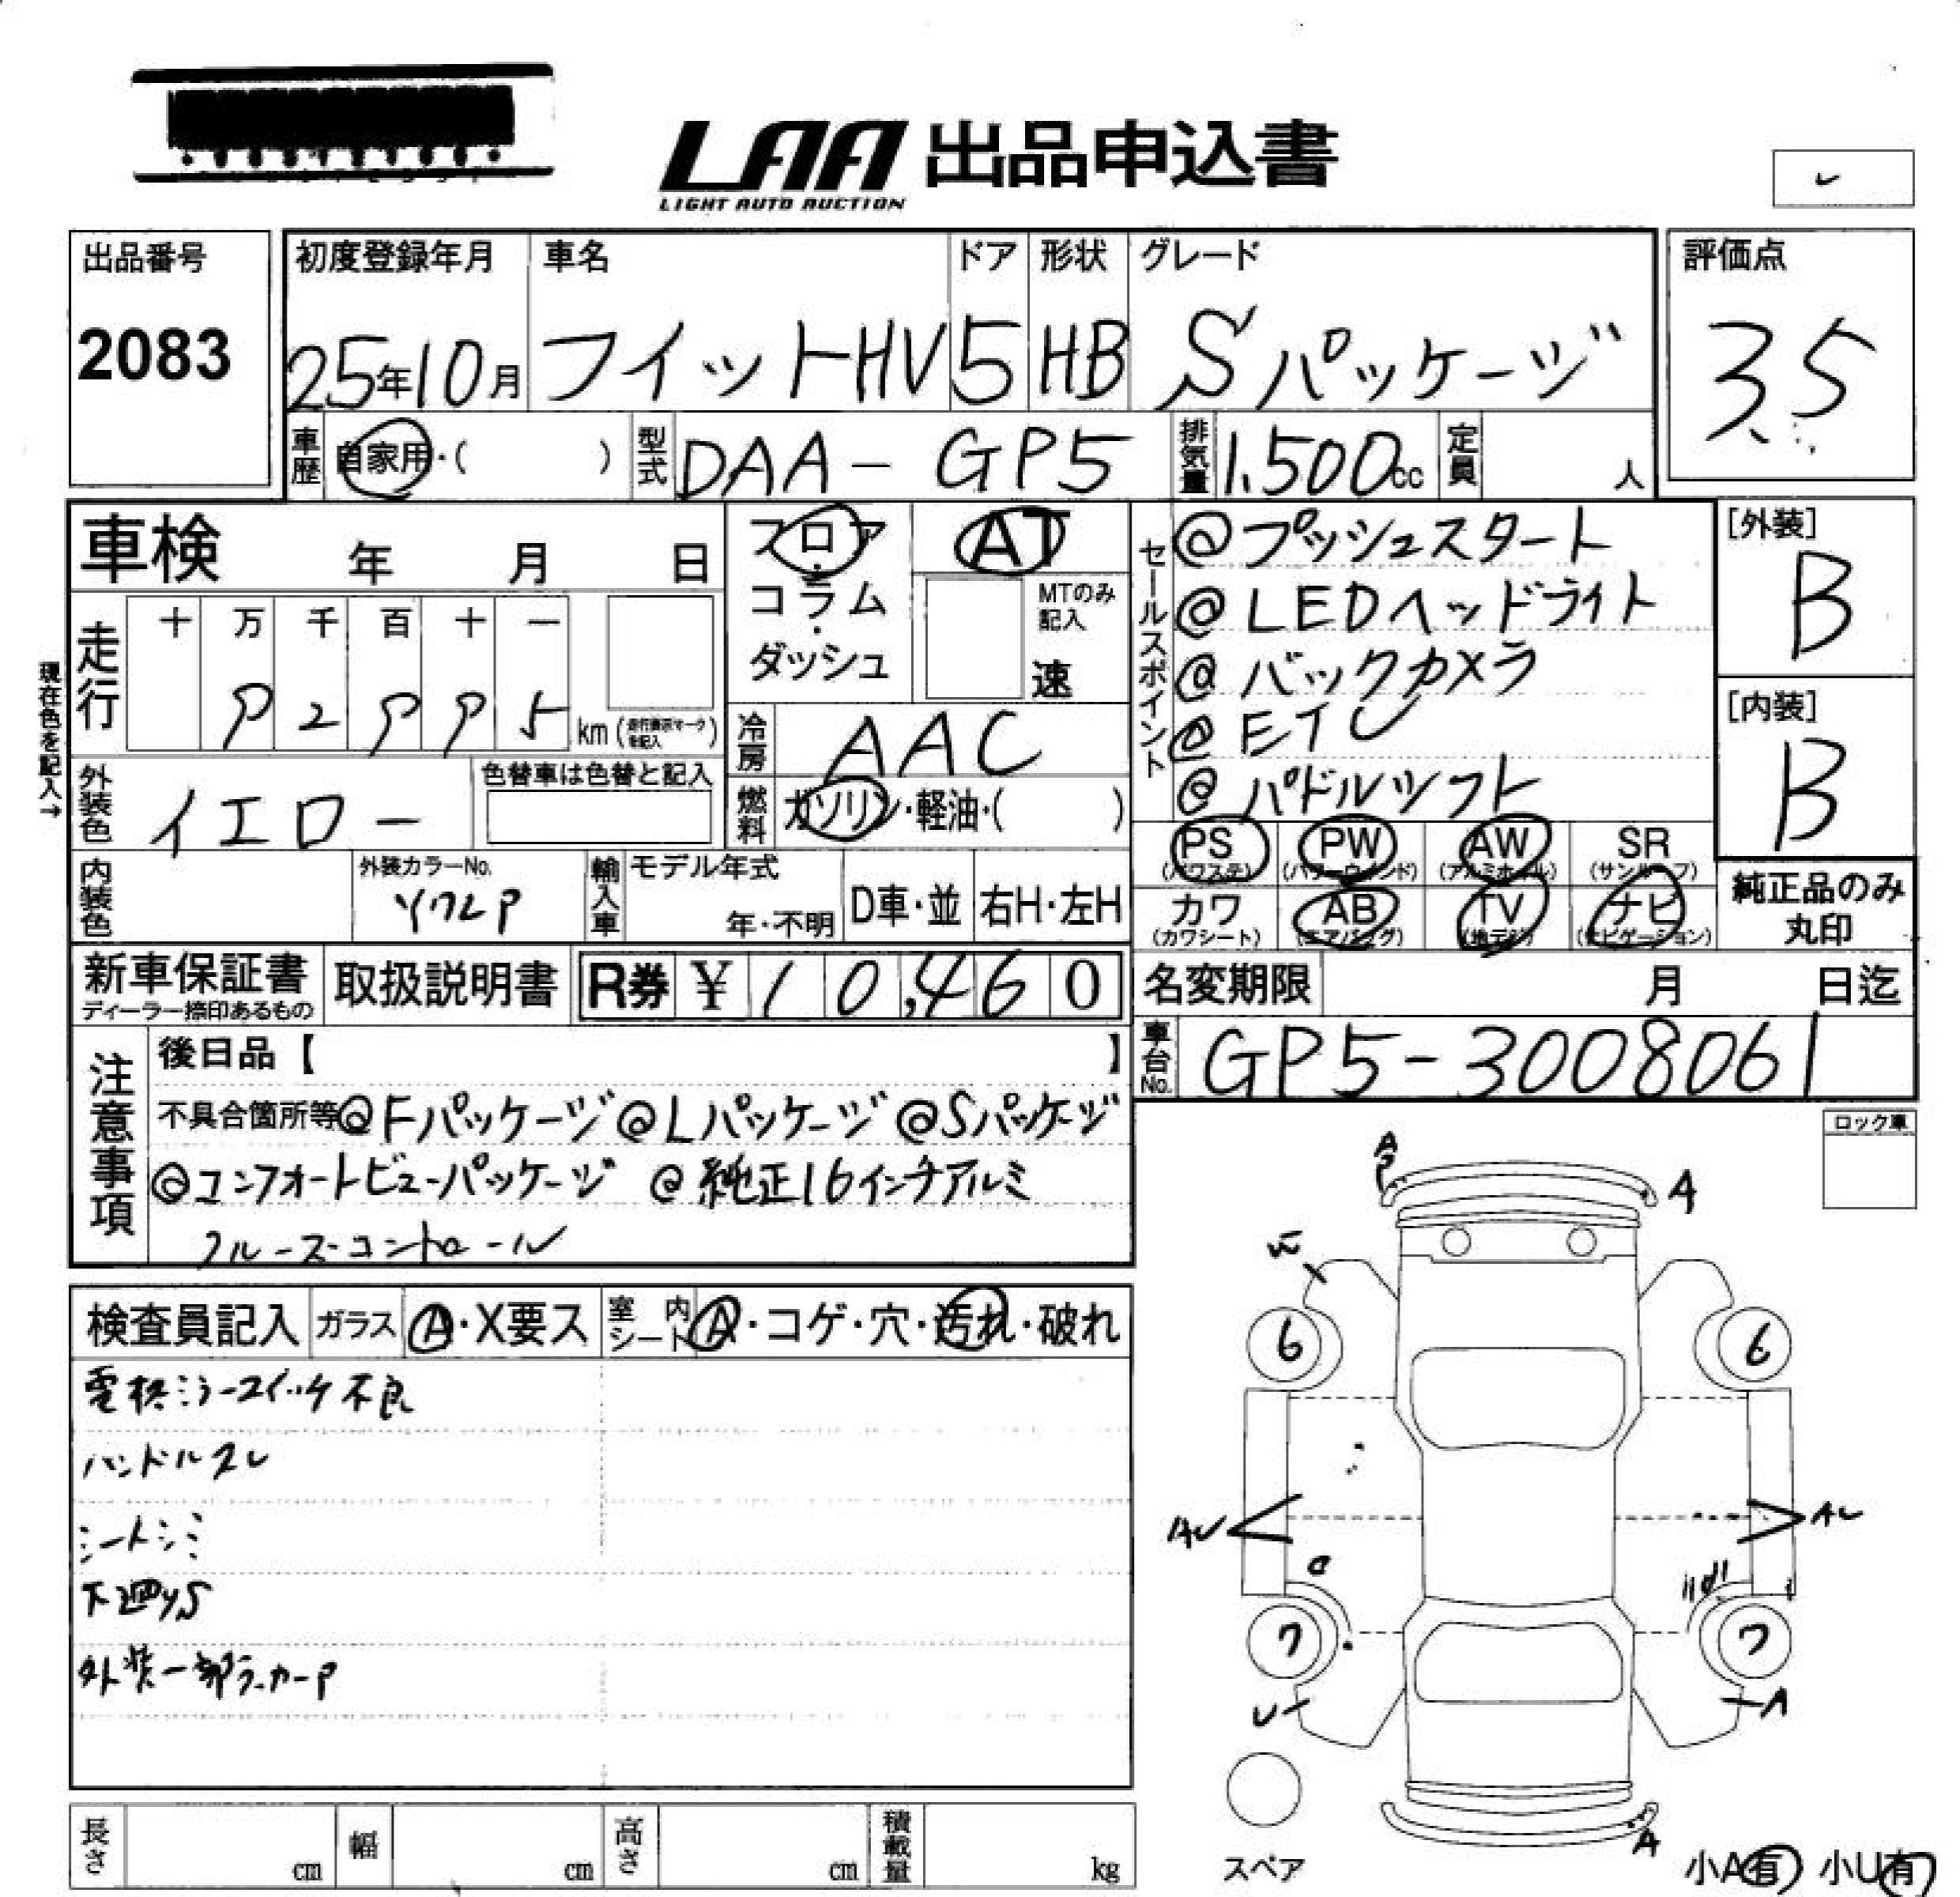 LAA 出品申込書
LIGHT AUTO AUCTION
出品番号
2083
初度登録年月 車名 ドア 形状 グレード
25年10月 フィットHV 5 HB Sパッケージ
評価点
3.5
車歴 自家用・( ) 型式 DAA-GP5 排気量 1.500cc 定員 人
車検 年 月 日
フロア・コラム・ダッシュ
AT
MTのみ記入
速
セールスポイント
@プッシュスタート
@LEDヘッドライト
@バックカメラ
@ETC
@パドルシフト
[外装]
B
[内装]
B
現在色を記入→
走行 十 万 千 百 十 一
km
冷房 AAC
外装色 イエロー
色替車は色替と記入
燃料 ガソリン・軽油・( )
PS (パワステ) PW (パワーウインド) AW (アルミホイル) SR (サンルーフ)
カワ (カワシート) AB (エアバッグ) TV (地デジ) ナビ (ナビゲーション)
純正品のみ丸印
内装色 外装カラーNo. 輸入車 モデル年式 年・不明 D車・並 右H・左H
新車保証書 ディーラー捺印あるもの 取扱説明書 R券 ¥10,460
名変期限 月 日迄
車台No. GP5-3008061
注意事項
後日品【 】
不具合箇所等 @Fパッケージ @Lパッケージ @Sパッケージ
@コンフォートビューパッケージ @純正16インチアルミ
クルーズコントロール
ロック車
検査員記入 ガラス A・X要ス 室内シート A・コゲ・穴・汚れ・破れ
電格ミラースイッチ不良
ハンドルスレ
シートシミ
下廻りS
外装一部ラッカーP
A A
6 6
AU AU
ワ ワ
U A
A
スペア
小A有 小U有
長さ cm 幅 cm 高さ cm 積載量 kg